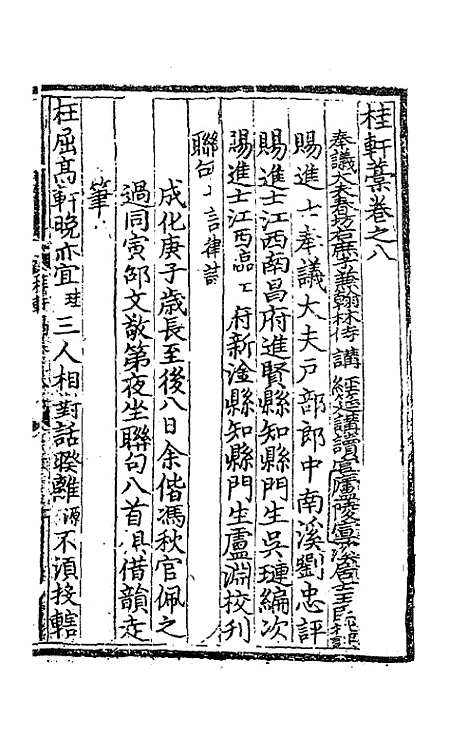 桂軒藁卷之八
奉議大夫春坊右庶子兼翰林侍講經筵講讀官廬陵
賜進士奉議大夫戸部郎中南溪劉忠評
賜進士江西南昌府進賢縣知縣門生吳璉編次
賜進士江西臨江府新淦縣知縣門生盧淵校刋
聯句 言律詩
成化庚子歲長至後八日余偕馮秋官佩之
過同寅邹文敬第夜坐聯句八首俱借韻走
筆
枉屈髙軒晚亦宜 三人相對話暌離源不湏投轄